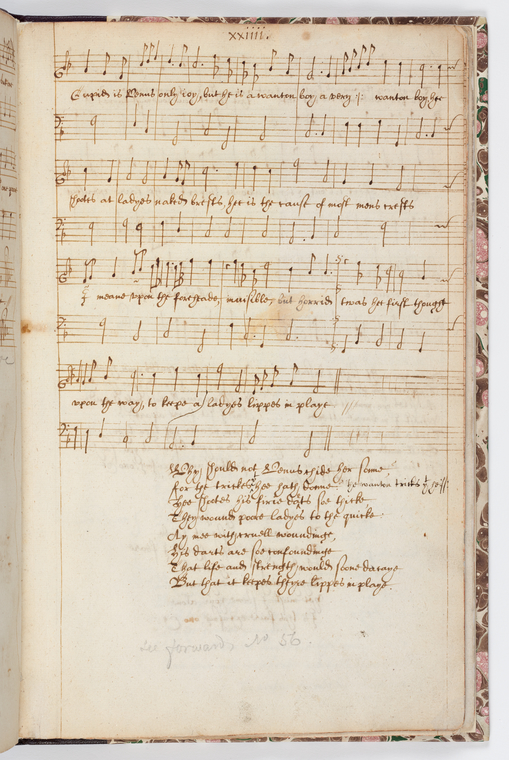 xxiiii.
Cupid is Venus only ioy, but he is a wanton boy a very :||: wanton boy hee
shoots at ladyes naked brests hee is the cause of most mens crests
I meane upon the foreheade, invisible, but horride twas hee first thought
upon the way, to keepe a ladyes lippes in playe
Why should not Venus chide her sonne
for the trickes hee hath donne: the wanton tricks
Hee shootes his firie darts soe thicke
They wound poore ladyes to the quicke
Ay mee with cruell woundinge,
His darts are soe confoundinge
That life and strength would soone decaye
But that it keepes theyre lippes in playe.
see forward, No 56.